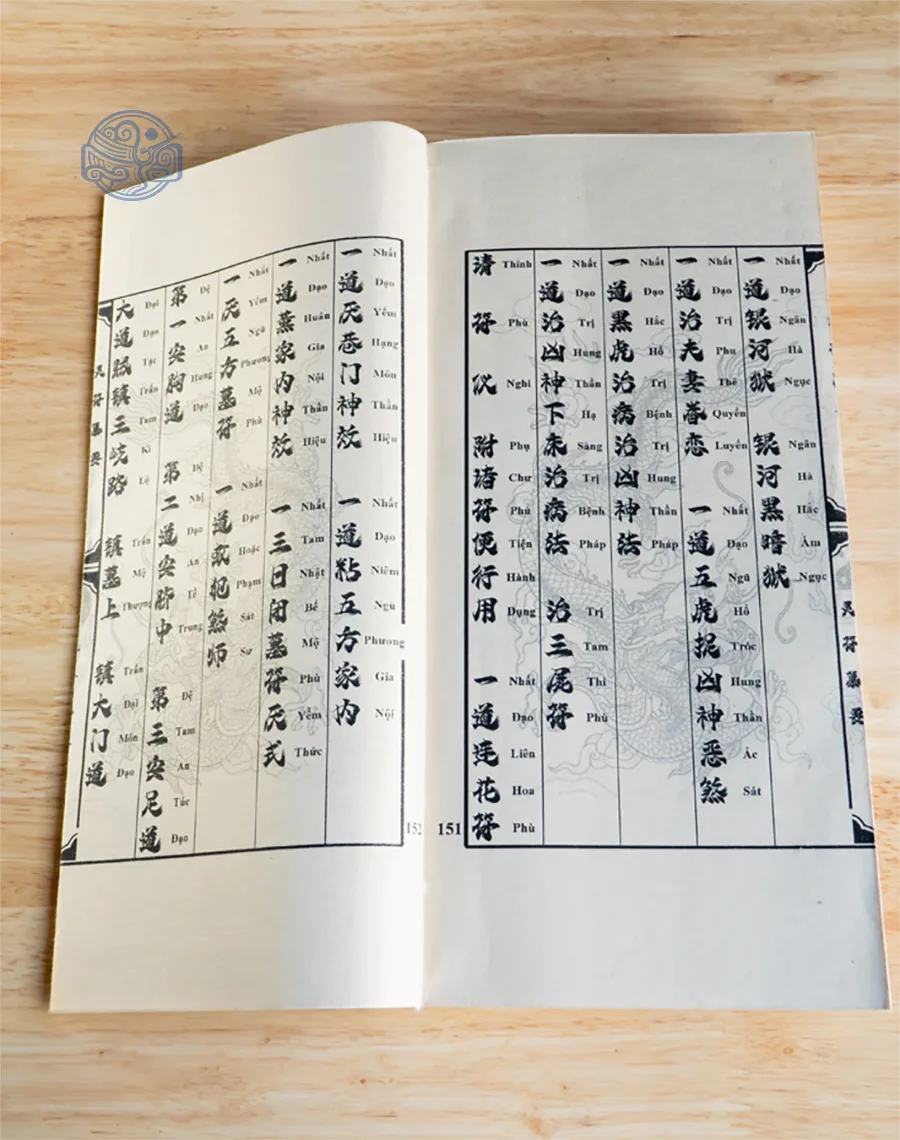 灵符
一道银河狱 银河黑暗狱
Nhất Đạo Ngân Hà Ngục Ngân Hà Hắc Ám Ngục
一道治夫妻眷恋 一道五虎捉凶神恶煞
Nhất Đạo Trị Phu Thê Quyến Luyến Nhất Đạo Ngũ Hổ Tróc Hung Thần Ác Sát
一道黑虎治病治凶神法
Nhất Đạo Hắc Hổ Trị Bệnh Trị Hung Thần Pháp
一道治凶神下床治病法 治三屍符
Nhất Đạo Trị Hung Thần Hạ Sàng Trị Bệnh Pháp Trị Tam Thi Phù
请符仪 附诸符便行用 一道莲花符
Thỉnh Phù Nghi Phụ Chư Phù Tiện Hành Dụng Nhất Đạo Liên Hoa Phù
151
一道厌巷门神效 一道粘五方家内
Nhất Đạo Yểm Hạng Môn Thần Hiệu Nhất Đạo Niêm Ngũ Phương Gia Nội
一道薰家内神效 一三日闭墓符厌式
Nhất Đạo Huân Gia Nội Thần Hiệu Nhất Tam Nhật Bế Mộ Phù Yểm Thức
一厌五方墓符 一道或犯煞师
Nhất Yểm Ngũ Phương Mộ Phù Nhất Đạo Hoặc Phạm Sát Sư
第一安胸道 第二道安脐中 第三安足道
Đệ Nhất An Hung Đạo Đệ Nhị Đạo An Tề Trung Đệ Tam An Túc Đạo
大道贼镇三岐路 镇墓上 镇大门道
Đại Đạo Tặc Trấn Tam Kì Lộ Trấn Mộ Thượng Trấn Đại Môn Đạo
152